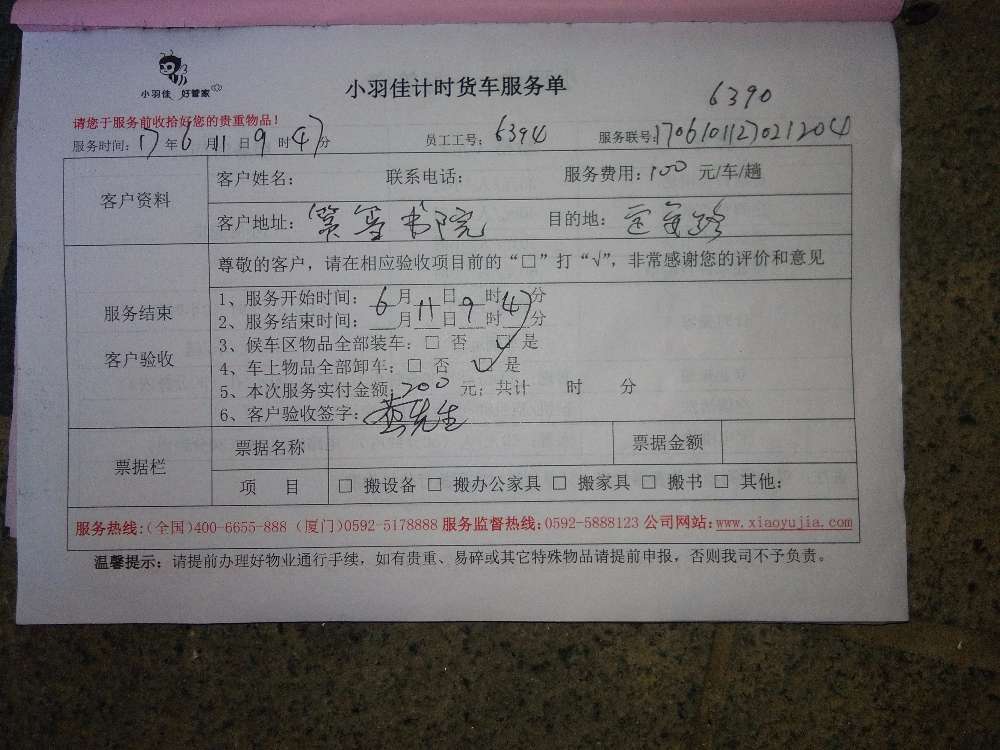 小羽佳 好管家
小羽佳计时货车服务单
6390
请您于服务前收拾好您的贵重物品！
服务时间：17年6月11日9时47分 员工工号：6394 服务联号：1706101127021204
客户资料
客户姓名： 联系电话： 服务费用：100元/车/趟
客户地址：书院 目的地：
服务结束
客户验收
尊敬的客户，请在相应验收项目前的“□”打“√”，非常感谢您的评价和意见
1、服务开始时间：6月11日9时47分
2、服务结束时间：___月___日___时___分
3、候车区物品全部装车：□ 否 ☑ 是
4、车上物品全部卸车：□ 否 ☑ 是
5、本次服务实付金额：200元；共计 时 分
6、客户验收签字：先生
票据栏
票据名称 票据金额
项 目 □ 搬设备 □ 搬办公家具 □ 搬家具 □ 搬书 □ 其他：
服务热线：(全国)400-6655-888 (厦门)0592-5178888 服务监督热线：0592-5888123 公司网站：www.xiaoyujia.com
温馨提示：请提前办理好物业通行手续，如有贵重、易碎或其它特殊物品请提前申报，否则我司不予负责。